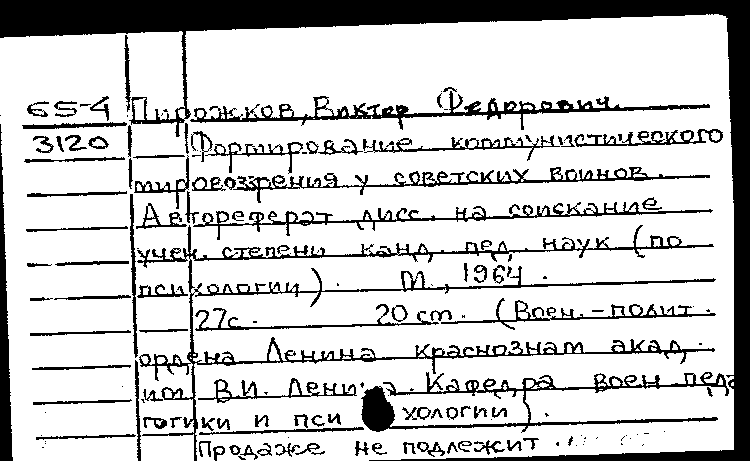 65-4 Пирожков, Виктор Федорович.
3120 Формирование коммунистического
мировоззрения у советских воинов.
Автореферат дисс. на соискание
учен. степени канд. пед. наук (по
психологии). М., 1964.
27с. 20 cm. (Воен.-полит.
ордена Ленина краснознам акад.
им. В.И. Ленина. Кафедра воен педа
гогики и психологии).
Продаже не подлежит.